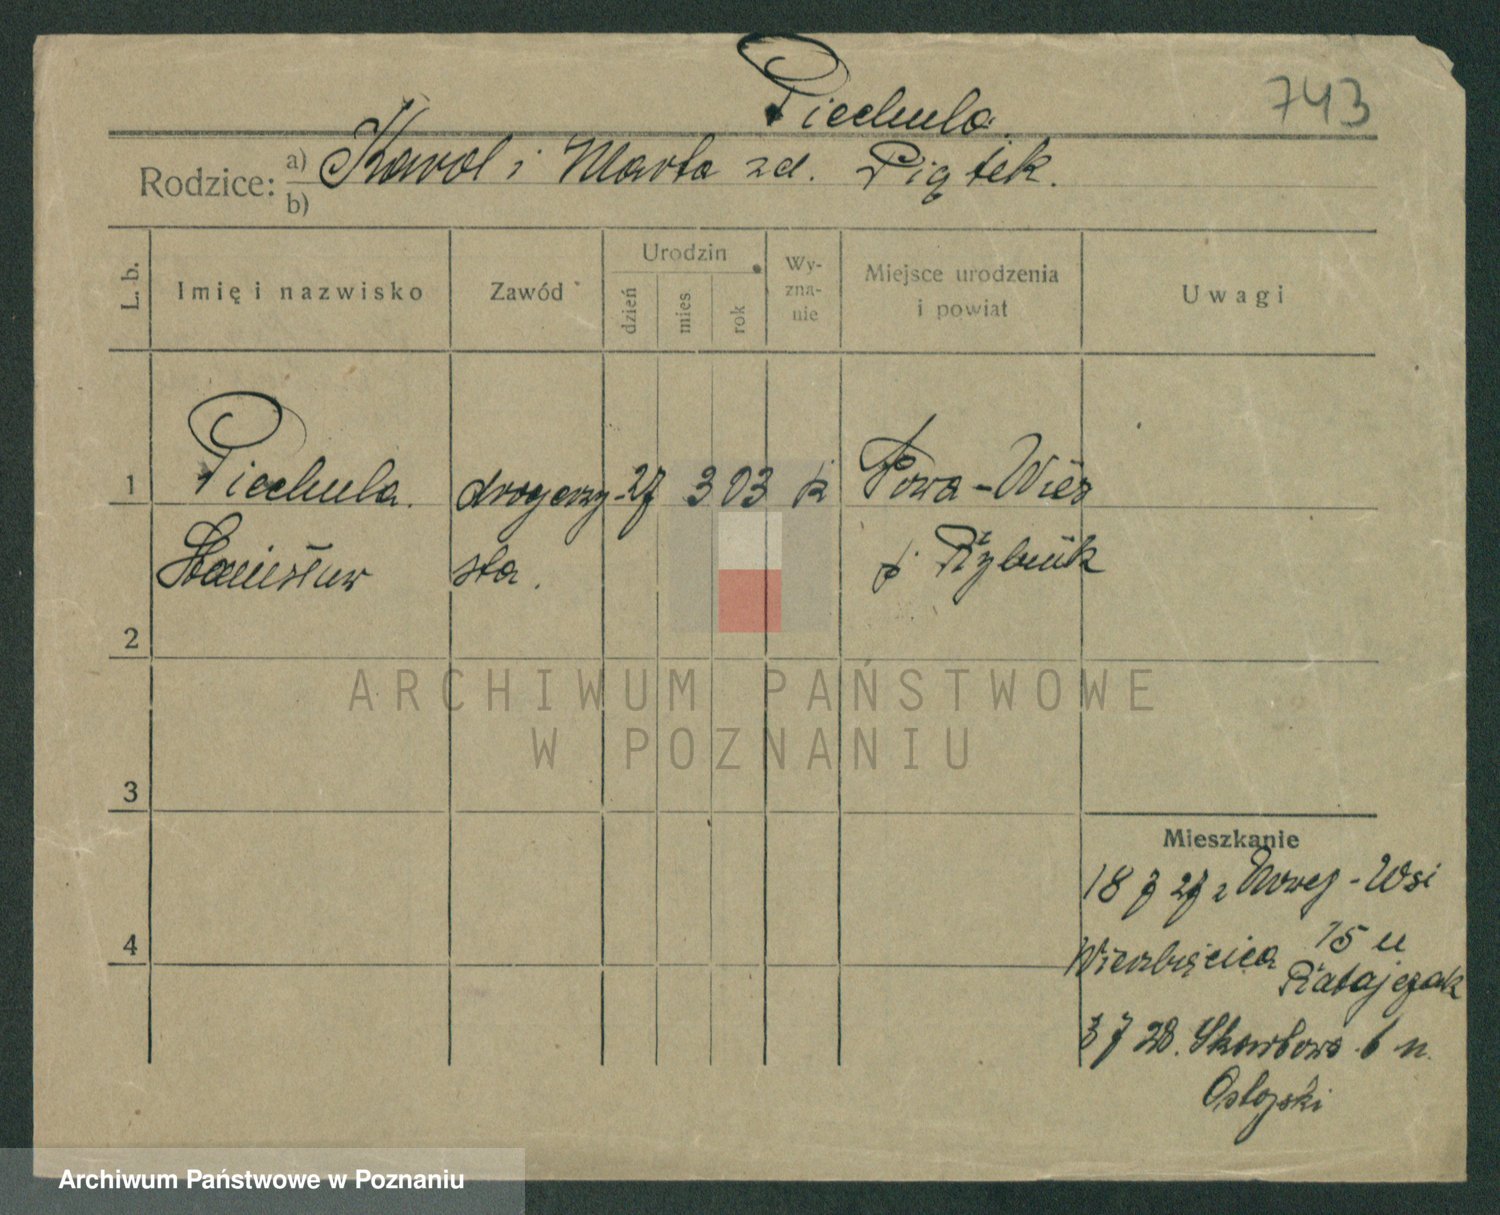 Piechula.
743
Rodzice: a) Karol i Marta zd. Piątek.
b)
L. b.
Imię i nazwisko
Zawód
Urodzin
dzień
mies
rok
Wy-
zna-
nie
Miejsce urodzenia
i powiat
Uwagi
1 Piechula. drogerzy- 27 3 03 k Nowa-Wieś
Stanisław sta. p. Rybnik
2
ARCHIWUM PAŃSTWOWE
W POZNANIU
3
Mieszkanie
18 7 27 z Nowej-Wsi
4
Wierzbięcica 15 u
Ratajczak
3 7 28. Skarbowa 6 u.
Archiwum Państwowe w Poznaniu